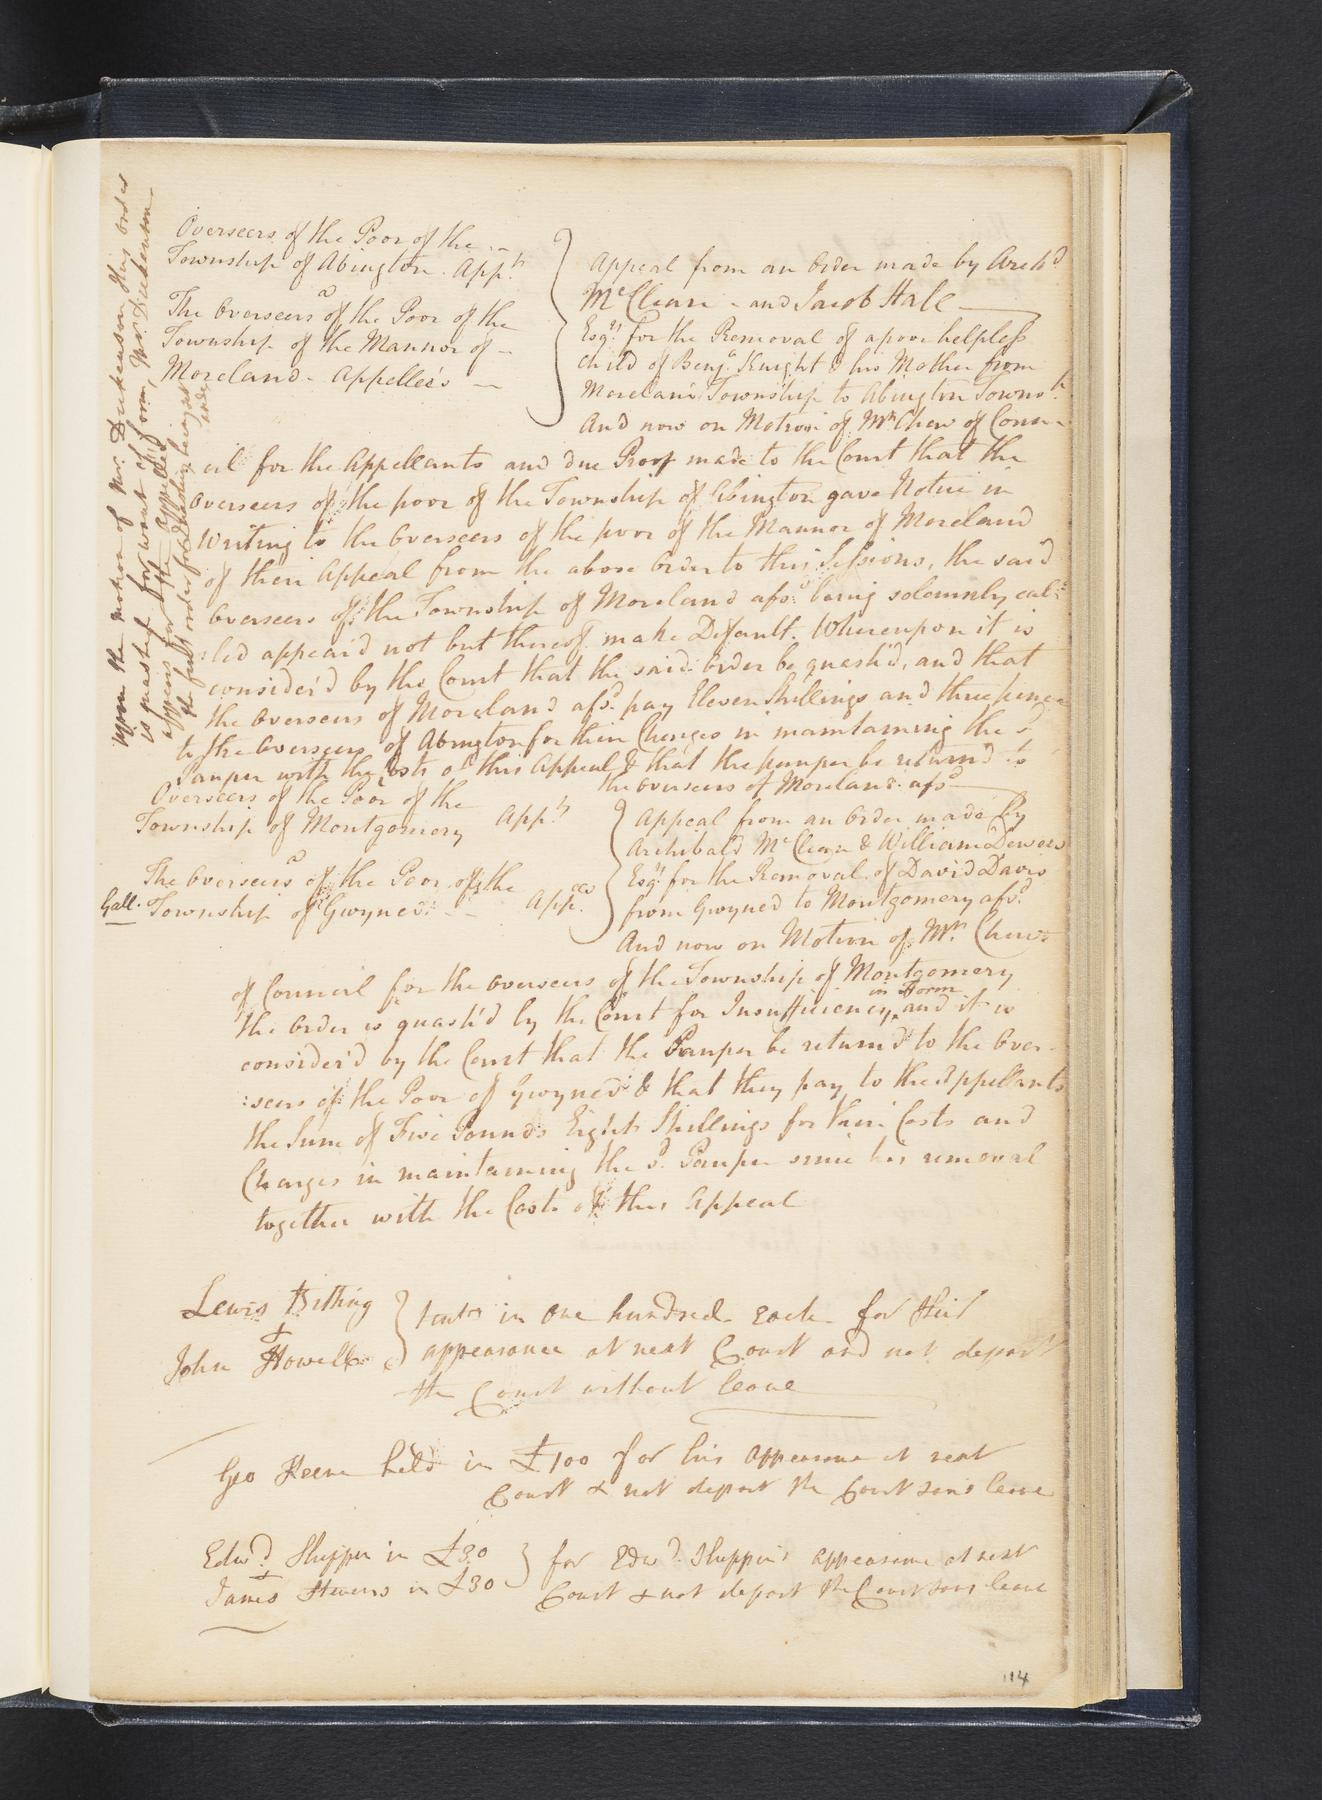 Overseers of the Poor of the
Township of Abington. App.ts
a
The Overseers of the Poor of the
Township of the Mannor of
Moreland. Appellees
Appeal from an Order made by Arch.d
McClean and Jacob Hall
Esq.rs for the Removal of a poor helpless
Child of Benj.a Knight & his Mother from
Moreland Township to Abington Towns.h
And now on Motion of Mr. Chew of Coun-
cil for the Appellants and due Proof made to the Court that the
Overseers of the poor of the Township of Abington gave Notice in
Writing to the Overseers of the poor of the Mannor of Moreland
of their Appeal from the above Order to this Sessions, the said
Overseers of the Township of Moreland afs.d being solemnly cal:
:led appear'd not but thereof make Default. Whereupon it is
consider'd by the Court that the said Order be quash'd, and that
the Overseers of Moreland afs.d pay Eleven Shillings and three pence
to the Overseers of Abington for their Charges in maintaining the s.d
Pauper with the Costs of this Appeal & that the pauper be return'd to
the Overseers of Moreland. afs.d
upon the motion of Mr. Dickenson this order
is quashed for want of form, Mr. Dickenson
appears for the Appellees
the
Overseers of the Poor of the
Township of Montgomery App.ts
a
The Overseers of the Poor of the
Gall. Township of Gwyned App.ees
Appeal from an Order made by
Archibald McClean & William Dewees
Esq.rs for the Removal of David Davis
from Gwyned to Montgomery afs.d
And now on Motion of Mr. Chew
of Council for the Overseers of the Township of Montgomery
the Order is quash'd by the Court for Insufficiency in Form and it is
consider'd by the Court that the Pauper be return'd to the Over-
:seers of the Poor of Gwyned & that they pay to the Appellants
the Sum of Five Pounds Eight Shillings for their Costs and
Charges in maintaining the s.d Pauper since his removal
together with the Costs of this Appeal
Lewis Bitting
+
John Howell
tent in one hundred Each for their
appearance at next Court and not depart
the Court without leave
Geo Keen held in £100 for his appearance at next
Court & not depart the Court sans leave
Edw.d Shippen in £30
+
James Stevens in £30
for Edw.d Shippen's appearance at next
Court & not depart the Court sans leave
114